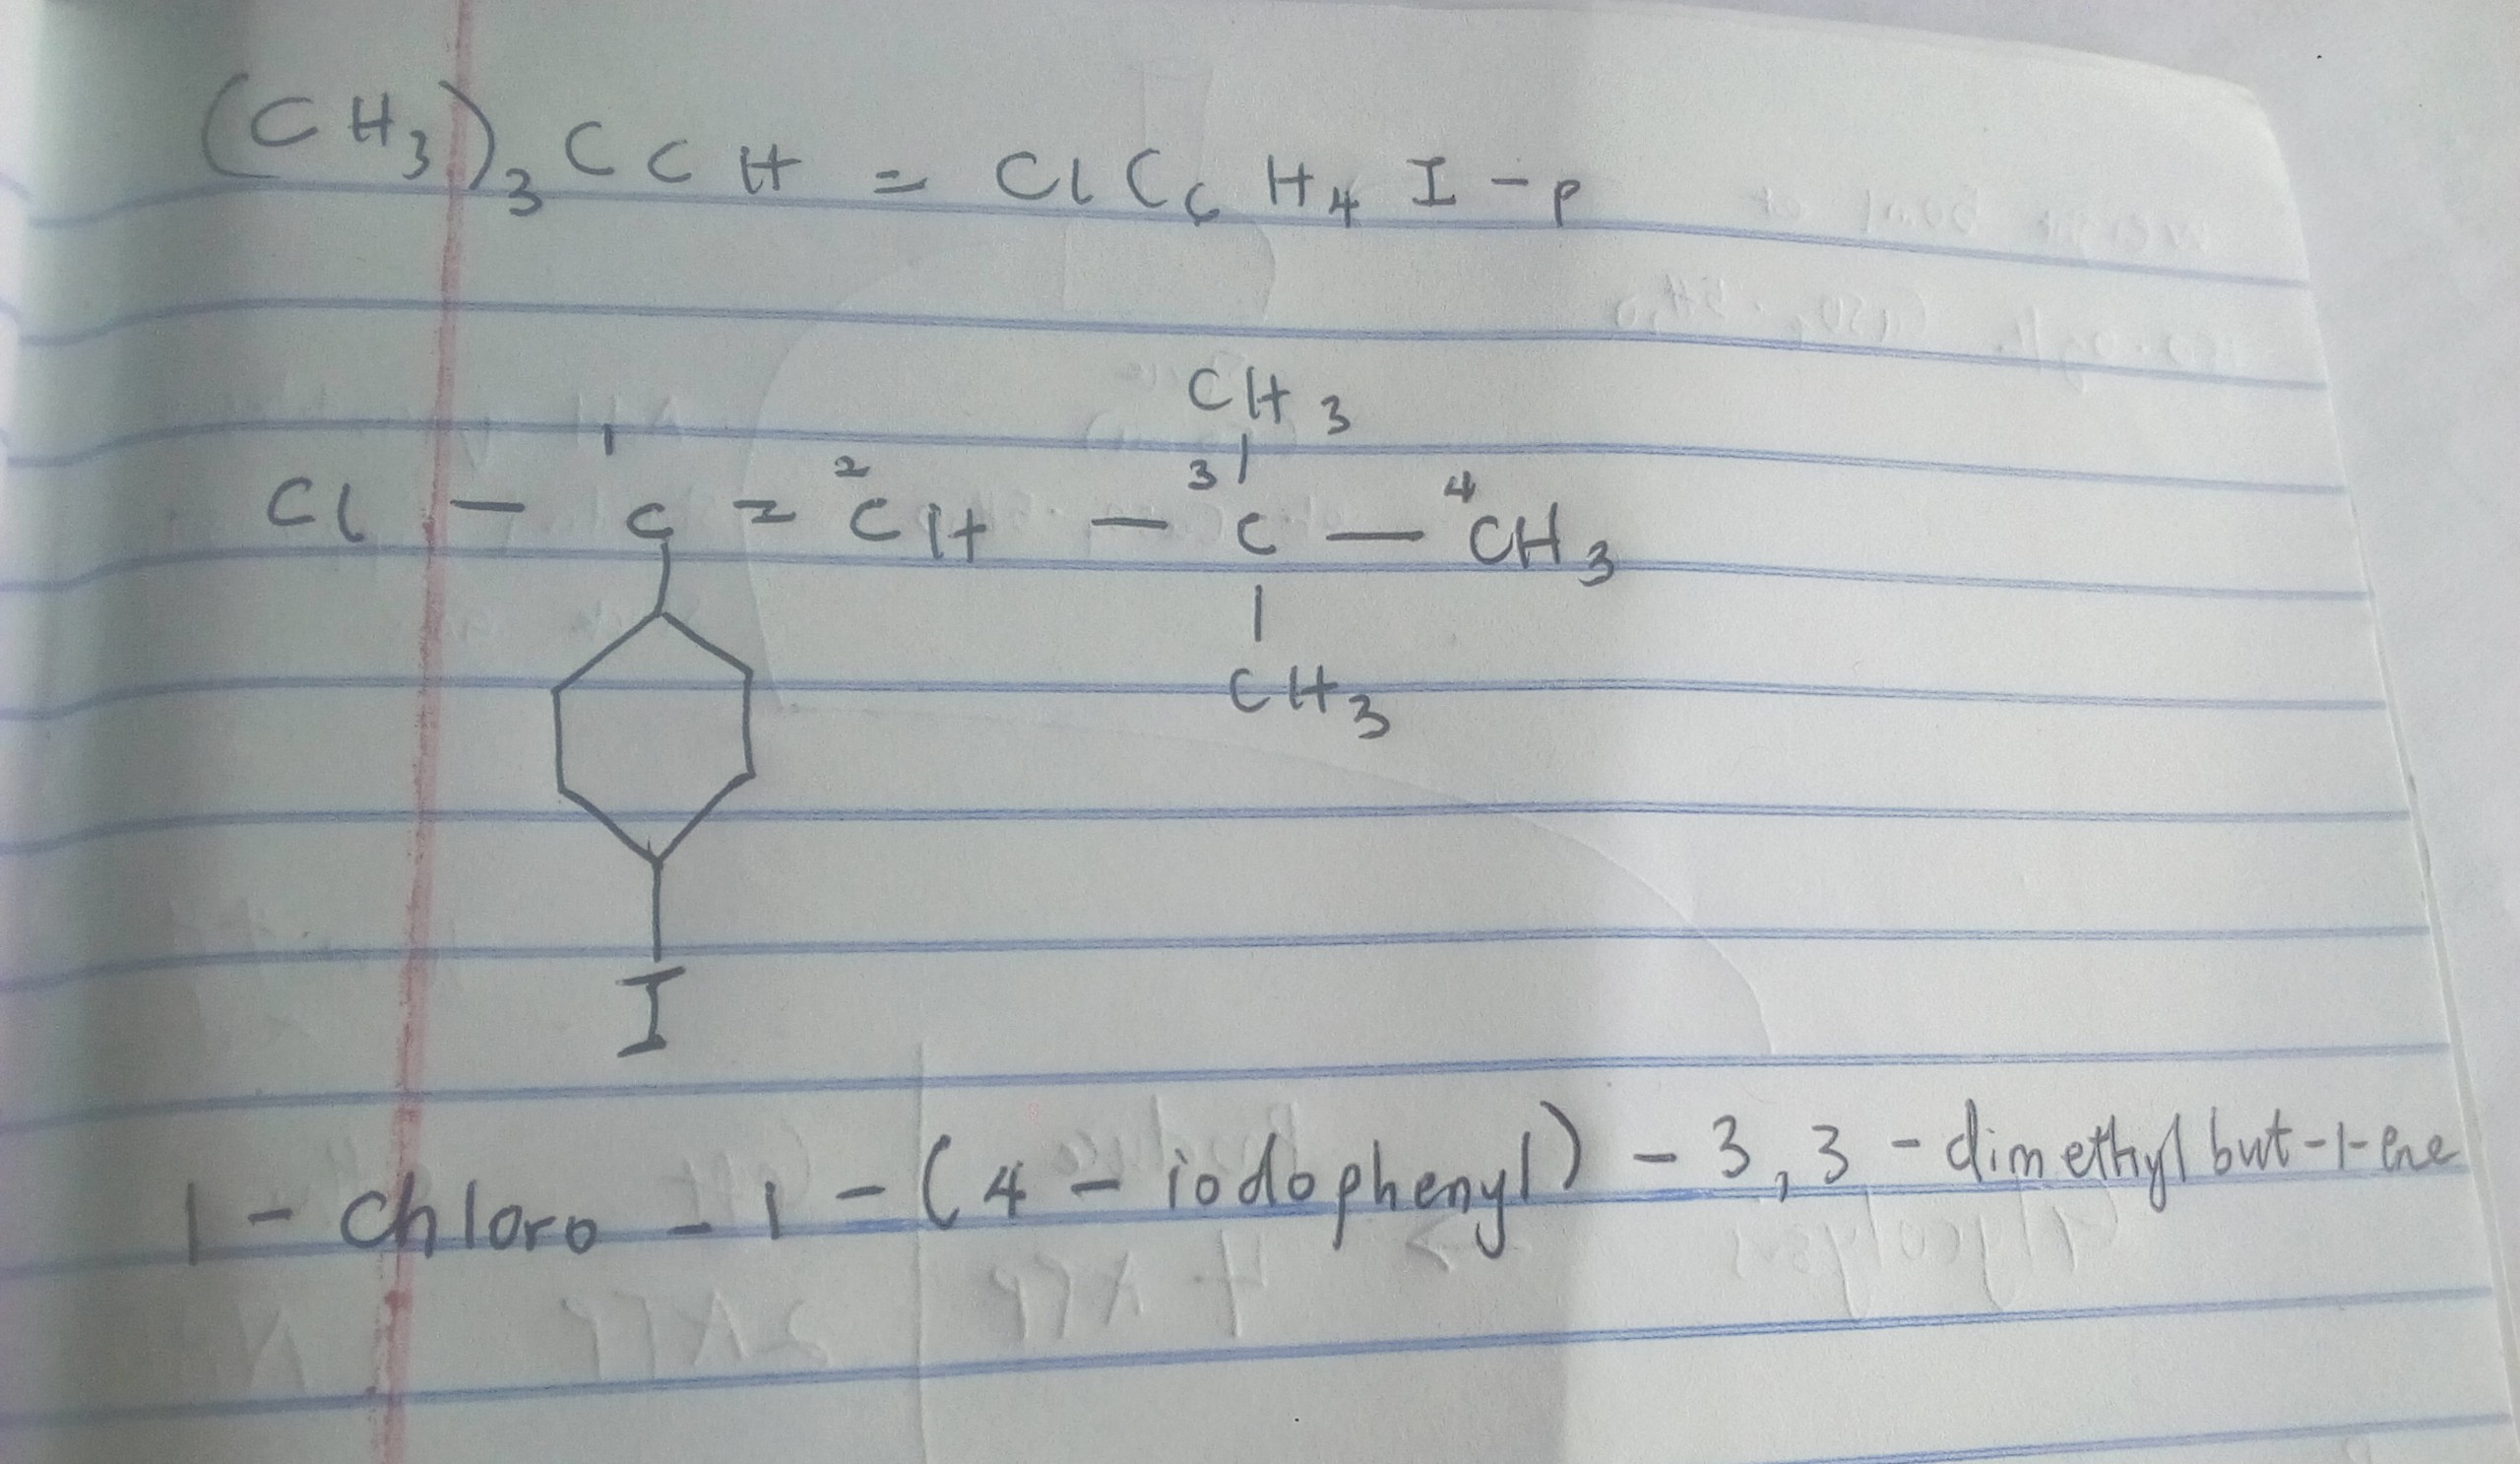 (CH₃)₃CCH = ClC₆H₄I-p
CH₃
1 2 3 4
Cl - C = CH - C - CH₃
CH₃
I
1-chloro-1-(4-iodophenyl)-3,3-dimethylbut-1-ene